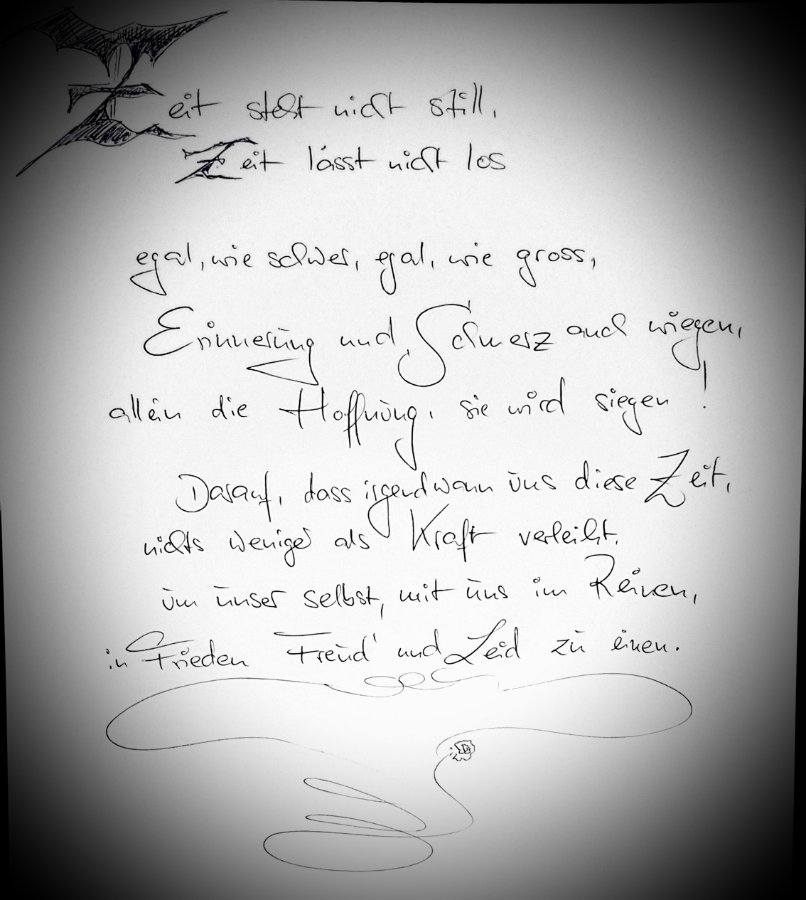 Zeit steht nicht still,
Zeit lässt nicht los
egal, wie schwer, egal, wie gross,
Erinnerung und Schmerz auch wiegen,
allein die Hoffnung, sie wird siegen!
Darauf, dass irgendwann uns diese Zeit,
nichts weniger als Kraft verleiht,
um unser selbst, mit uns im Reinen,
in Frieden Freud' und Leid zu einen.